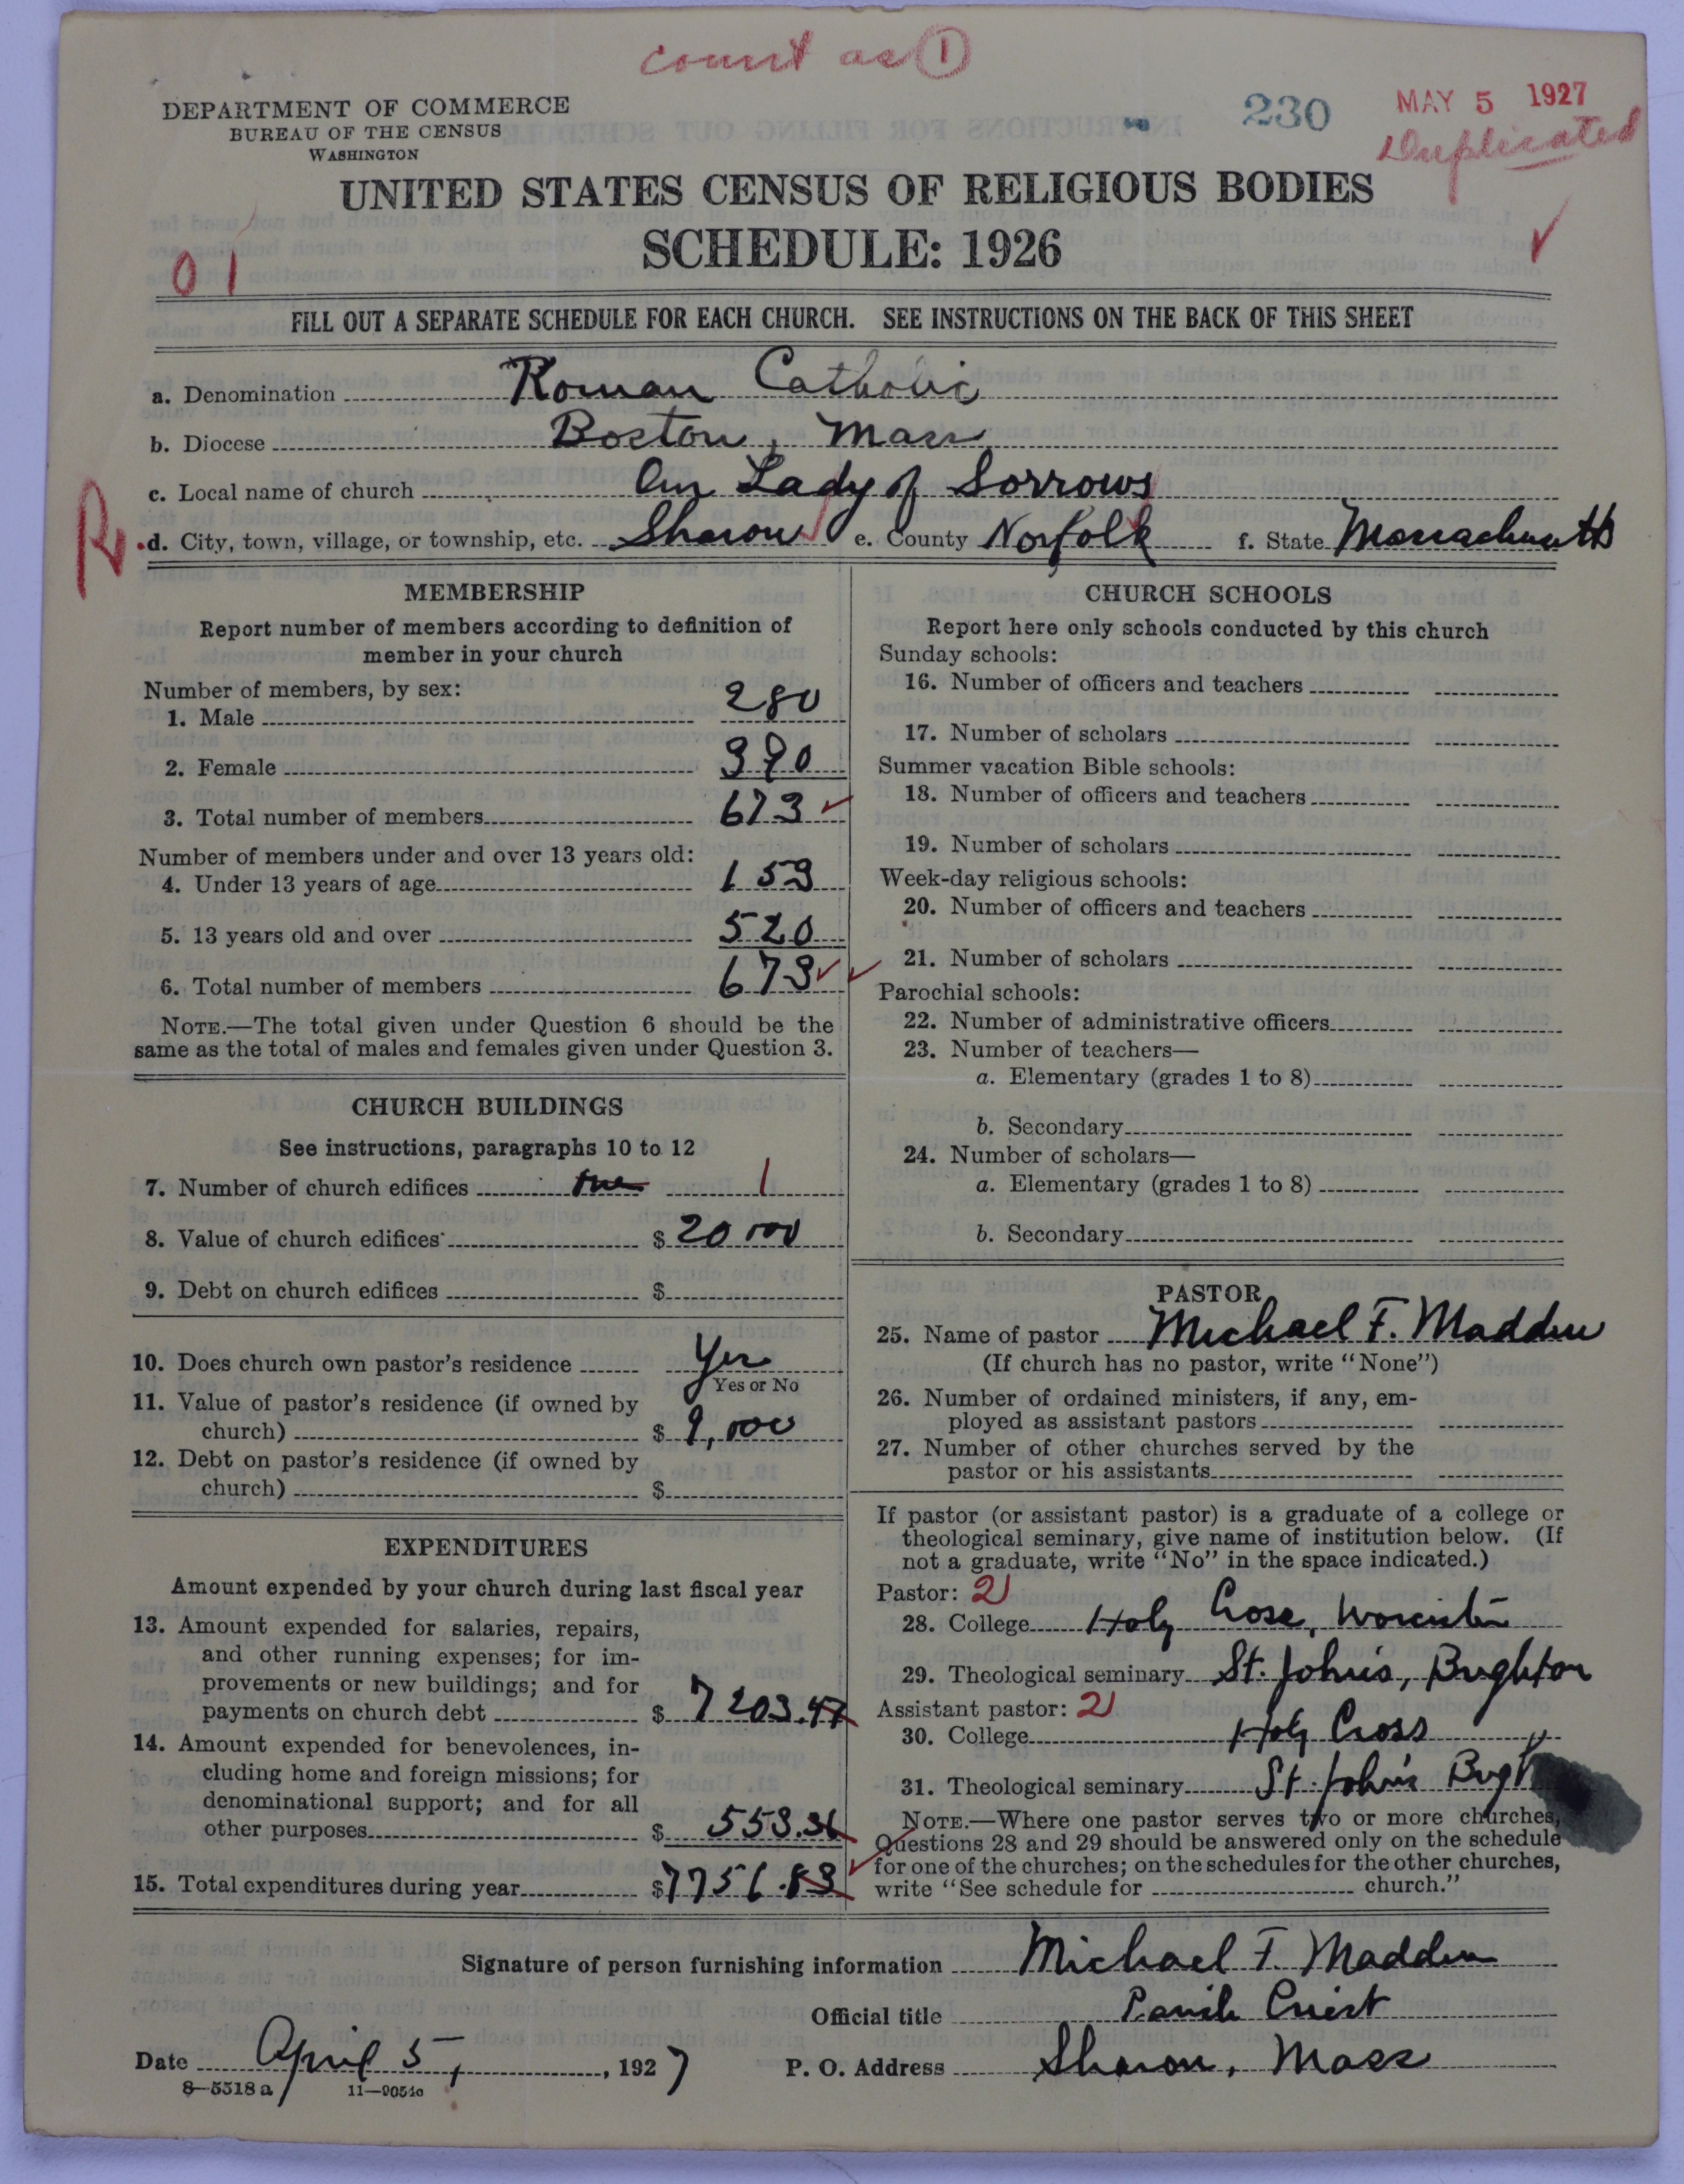 count as 1
DEPARTMENT OF COMMERCE
BUREAU OF THE CENSUS
WASHINGTON
230
MAY 5 1927
Duplicated
UNITED STATES CENSUS OF RELIGIOUS BODIES
SCHEDULE: 1926
01
FILL OUT A SEPARATE SCHEDULE FOR EACH CHURCH. SEE INSTRUCTIONS ON THE BACK OF THIS SHEET
a. Denomination Roman Catholic
b. Diocese Boston, Mass
c. Local name of church Our Lady of Sorrows
R
d. City, town, village, or township, etc. Sharon e. County Norfolk f. State Massachusetts
MEMBERSHIP
Report number of members according to definition of
member in your church
Number of members, by sex:
1. Male 280
2. Female 390
3. Total number of members 673
Number of members under and over 13 years old:
4. Under 13 years of age 153
5. 13 years old and over 520
6. Total number of members 673
NOTE.—The total given under Question 6 should be the
same as the total of males and females given under Question 3.
CHURCH BUILDINGS
See instructions, paragraphs 10 to 12
7. Number of church edifices one 1
8. Value of church edifices $ 20 000
9. Debt on church edifices $
10. Does church own pastor's residence Yes
Yes or No
11. Value of pastor's residence (if owned by
church) $ 9,000
12. Debt on pastor's residence (if owned by
church) $
EXPENDITURES
Amount expended by your church during last fiscal year
13. Amount expended for salaries, repairs,
and other running expenses; for im-
provements or new buildings; and for
payments on church debt $ 7203.47
14. Amount expended for benevolences, in-
cluding home and foreign missions; for
denominational support; and for all
other purposes $ 553.36
15. Total expenditures during year $ 7756.83
CHURCH SCHOOLS
Report here only schools conducted by this church
Sunday schools:
16. Number of officers and teachers
17. Number of scholars
Summer vacation Bible schools:
18. Number of officers and teachers
19. Number of scholars
Week-day religious schools:
20. Number of officers and teachers
21. Number of scholars
Parochial schools:
22. Number of administrative officers
23. Number of teachers—
a. Elementary (grades 1 to 8)
b. Secondary
24. Number of scholars—
a. Elementary (grades 1 to 8)
b. Secondary
PASTOR
25. Name of pastor Michael F. Madden
(If church has no pastor, write "None")
26. Number of ordained ministers, if any, em-
ployed as assistant pastors
27. Number of other churches served by the
pastor or his assistants
If pastor (or assistant pastor) is a graduate of a college or
theological seminary, give name of institution below. (If
not a graduate, write "No" in the space indicated.)
Pastor: 2
28. College Holy Cross, Worcester
29. Theological seminary St. John's, Brighton
Assistant pastor: 2
30. College Holy Cross "
31. Theological seminary St. John's
NOTE.—Where one pastor serves two or more churches,
Questions 28 and 29 should be answered only on the schedule
for one of the churches; on the schedules for the other churches,
write "See schedule for church."
Signature of person furnishing information Michael F. Madden
Official title Parish Priest
Date April 5, 1927 P. O. Address Sharon, Mass
8—5318 a 11—9051a